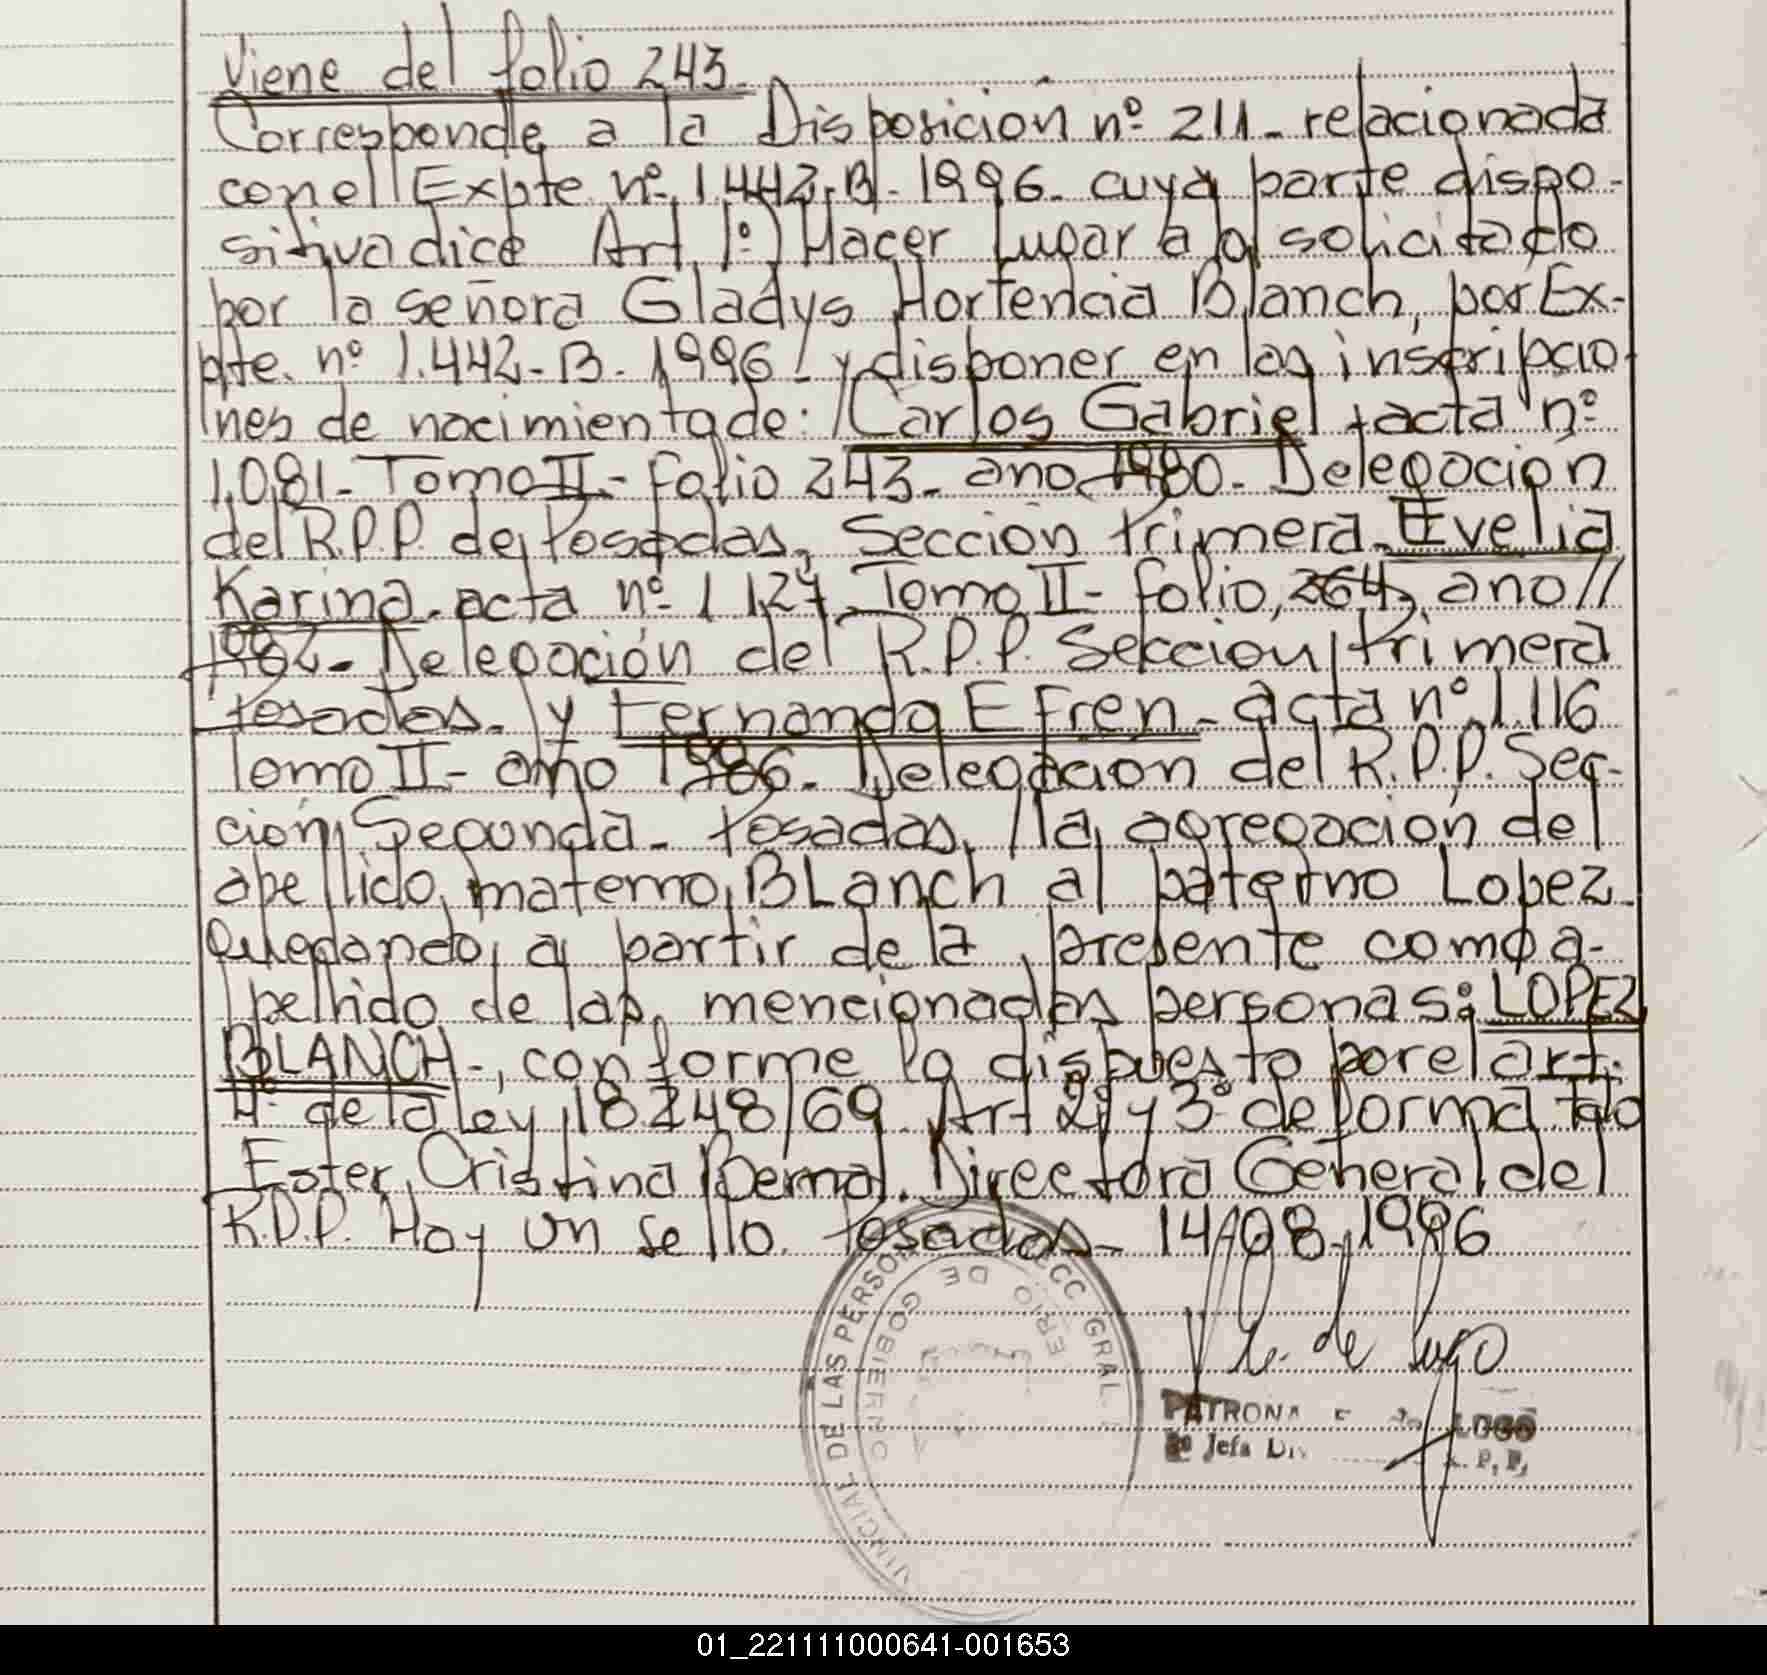 Viene del folio 243.
Corresponde a la Disposición nº 211 - relacionada
con el Expte. nº 1.442-B-1996. cuya parte dispo-
sitiva dice Art 1º) Hacer Lugar a lo solicitado
por la señora Gladys Hortencia Blanch, por Ex-
pte. nº 1.442-B-1996! y disponer en las inscripcio-
nes de nacimiento de: Carlos Gabriel, acta nº
1.081- Tomo II- folio 243- año 1980- Delegación
del R.P.P. de Posadas. Sección Primera. Evelia
Karina. acta nº 1127 Tomo II- folio, 264, año //
1982- Delegación del R.P.P. Sección Primera
Posadas. y Fernando Efren- acta nº 1.116
Tomo II- año 1986- Delegación del R.P.P. Sec-
ción Segunda- Posadas, la agregación del
apellido materno BLanch al paterno Lopez.
Quedando a partir de la presente como a-
pellido de las mencionadas personas: LOPEZ
BLANCH-, conforme lo dispuesto por el art.
4º de la Ley 18248/69. Art 2º y 3º de forma Fdo
Ester Cristina Bernal. Directora General del
R.P.P. Hay un sello. Posadas- 14/08-1996
DE LAS PERSO
CC GRAL.
GOBIERNO DE
ERIO
de Lugo
PATRONA
LUGO
2º Jefa Div
R. P. P.
01_221111000641-001653